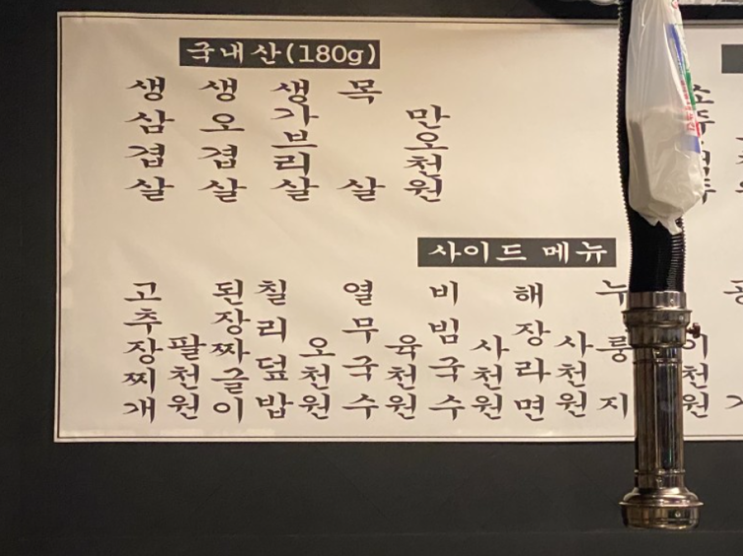 국내산(180g)
생삼겹살
생오겹살
생가브리살
목살
만오천원
사이드 메뉴
고추장찌개
팔천원
된장짜글이
칠리덮밥
오천원
열무국수
육천원
비빔국수
사천원
해장라면
사천원
누룽지
이천원